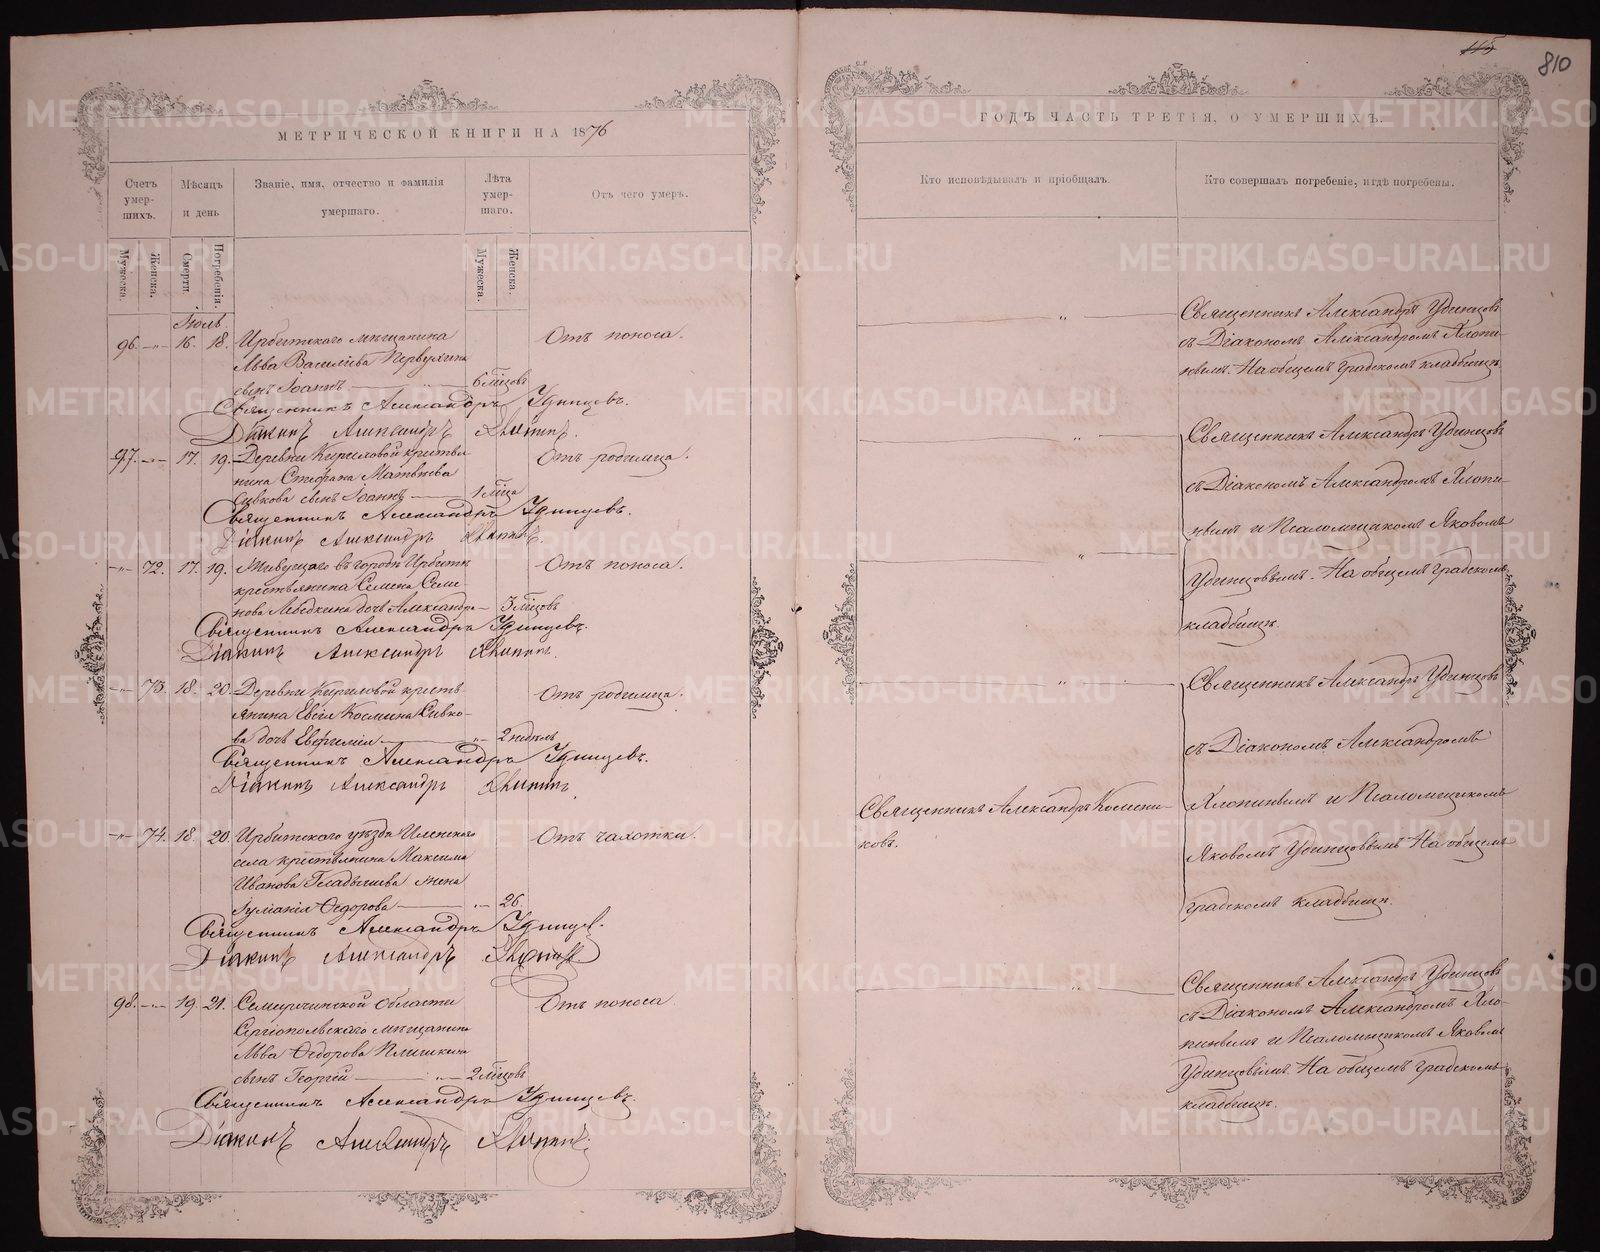 115
810
МЕТРИЧЕСКОЙ КНИГИ НА 1876
Счетъ умер-шихъ.
Мѣсяцъ и день
Званіе, имя, отчество и фамилія умершаго.
Лѣта умер-шаго.
Отъ чего умеръ.
Мужеска.
Женска.
Смерти.
Погребенія.
Мужеска.
Женска.
Іюль
96. -"- 16. 18. Ирбитскаго мѣщанина
Отъ поноса.
Льва Василіева Первухина
сынъ Іоаннъ 6 мѣцовъ
Священникъ Александръ Удинцевъ.
Діаконъ Александръ Хлопинъ.
97. -"- 17. 19. Деревни Кириловой кресть-
Отъ родимца.
нина Стефана Матвѣева
Сивкова сынъ Іоаннъ 1 мѣца
Священникъ Александръ Удинцевъ.
Діаконъ Александръ Хлопинъ.
-"- 72. 17. 19. Живущаго въ городѣ Ирбити
Отъ поноса.
крестьянина Семена Семе-
нова Лебедкина дочь Александра 3 мѣцовъ
Священникъ Александръ Удинцевъ.
Діаконъ Александръ Хлопинъ.
-"- 73. 18. 20. Деревни Кириловой кресть-
Отъ родимца.
янина Евсіл Космина Сивко-
ва дочь Евфимія -"- 2 недѣль
Священникъ Александръ Удинцевъ.
Діаконъ Александръ Хлопинъ.
-"- 74. 18. 20. Ирбитскаго уѣзда Иленскаго
Отъ чахотки.
села крестьянина Максима
Иванова Гладышева жена
Іуліанія Ѳедорова -"- 26.
Священникъ Александръ Удинцев.
Діаконъ Александръ Хлопинъ
98. -"- 19 21. Семирѣчинской области
Отъ поноса.
Сергіопольскаго мѣщанина
Льва Ѳедорова Плишкина
сынъ Георгій 2 мѣцовъ
Священникъ Александръ Удинцевъ.
Діаконъ Александръ Хлопинъ.
ГОДЪ ЧАСТЬ ТРЕТІЯ, О УМЕРШИХЪ.
Кто исповѣдывалъ и пріобщалъ.
Кто совершалъ погребеніе, и гдѣ погребены.
Священникъ Александръ Удинцовъ
съ Діакономъ Александромъ Хлопи-
нымъ. На общемъ градскомъ кладбищѣ.
Священникъ Александръ Удинцовъ
съ Діакономъ Александромъ Хлопи-
нымъ и Псаломщикомъ Яковомъ
Удинцовымъ. На общемъ градскомъ
кладбищѣ.
Священникъ Александръ Удинцовъ
съ Діакономъ Александромъ
Священникъ Александръ Комени-
ковъ.
Хлопинымъ и Псаломщикомъ
Яковомъ Удинцовымъ. На общемъ
градскомъ кладбищѣ.
Священникъ Александръ Удинцовъ
съ Діакономъ Александромъ Хло-
пинымъ и Псаломщикомъ Яковомъ
Удинцовымъ. На общемъ градскомъ
кладбищѣ.
METRIKI.GASO-URAL.RU